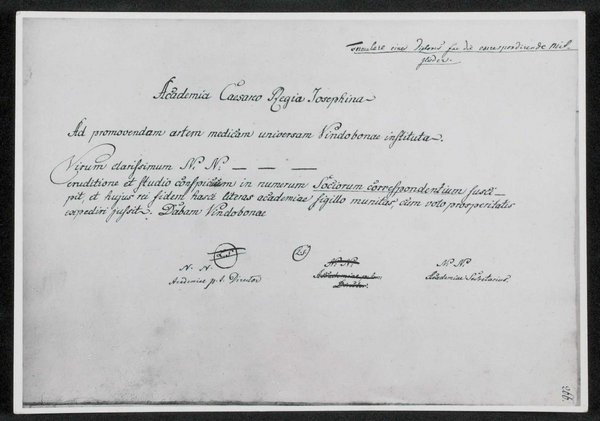 Formulare eines Diploms für die correspondirende Mit-
glieder.
Academia Caesareo Regia Iosephina
Ad promovendam artem medicam universam Vindobonae instituta.
Virum clarissimum N. N. — — —
eruditione et studio conspicuum in numerum Sociorum correspondentium susci-
pit, et hujus rei fidem hasce literas academiae sigillo munitas, cum voto prosperitatis
expediri jussit. Dabam Vindobonae
L.S.
N. N.
Academiae p. t. Director
N. N.
Academiae p. t.
Director.
N. N.
Academiae Secretarius.